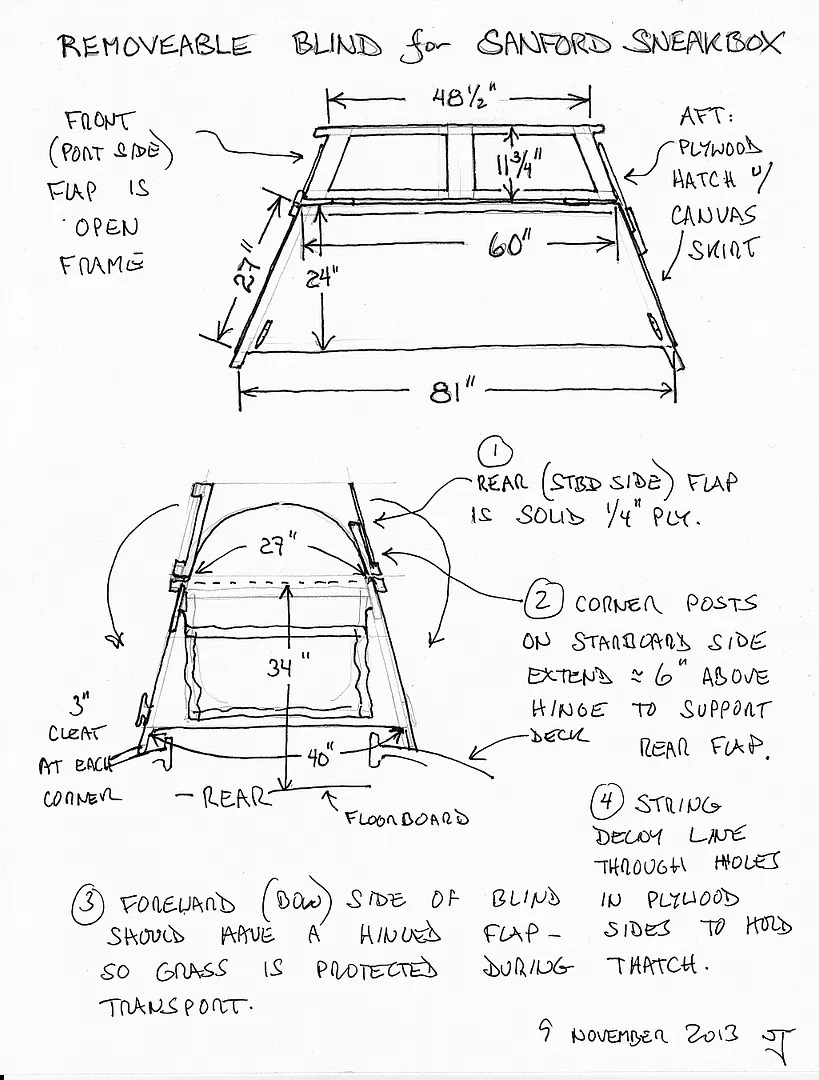 REMOVEABLE BLIND for SANFORD SNEAKBOX
48 1/2"
FRONT
(PORT SIDE)
FLAP IS
OPEN
FRAME
11 3/4"
AFT:
PLYWOOD
HATCH w/
CANVAS
SKIRT
27"
24"
60"
81"
1
REAR (STBD SIDE) FLAP
IS SOLID 1/4" PLY.
27"
2 CORNER POSTS
ON STARBOARD SIDE
EXTEND ≈ 6" ABOVE
HINGE TO SUPPORT
REAR FLAP.
34"
3"
CLEAT
AT EACH
CORNER
40"
DECK
- REAR
FLOORBOARD
4 STRING
DECOY LINE
THROUGH HOLES
IN PLYWOOD
SIDES TO HOLD
THATCH.
3 FOREWARD (BOW) SIDE OF BLIND
SHOULD HAVE A HINGED FLAP -
SO GRASS IS PROTECTED DURING
TRANSPORT.
9 NOVEMBER 2013